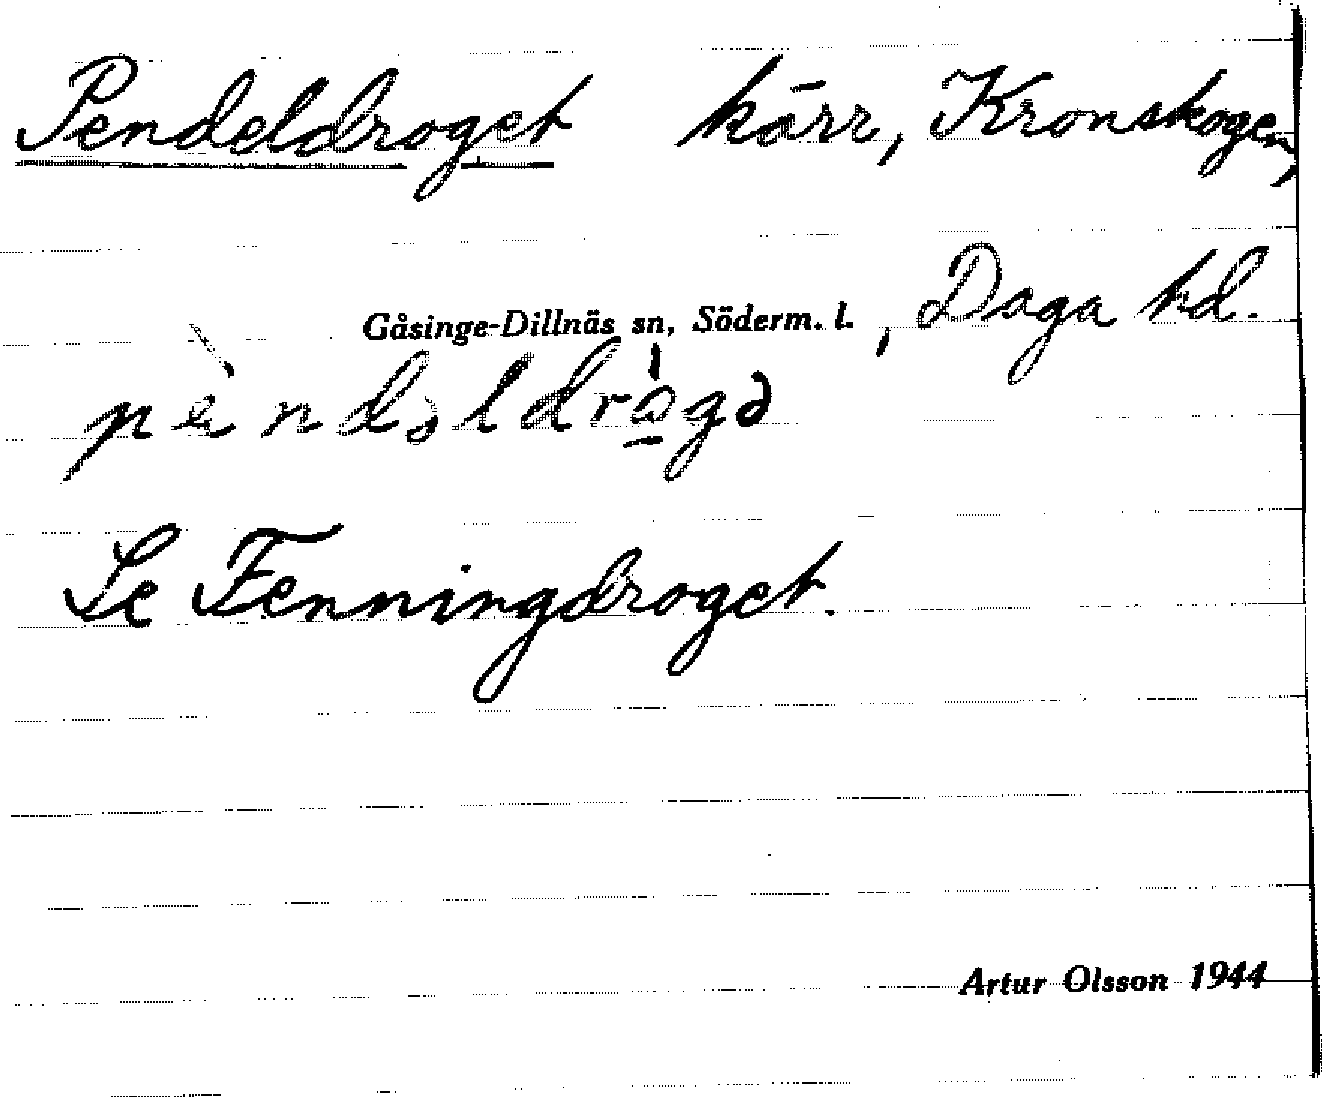 Pendeldroget kärr, Kronskogen,
Gåsinge-Dillnäs sn, Söderm. l., Daga hd.
pèndəldrògə
Se Fenningdroget.
Artur Olsson 1944